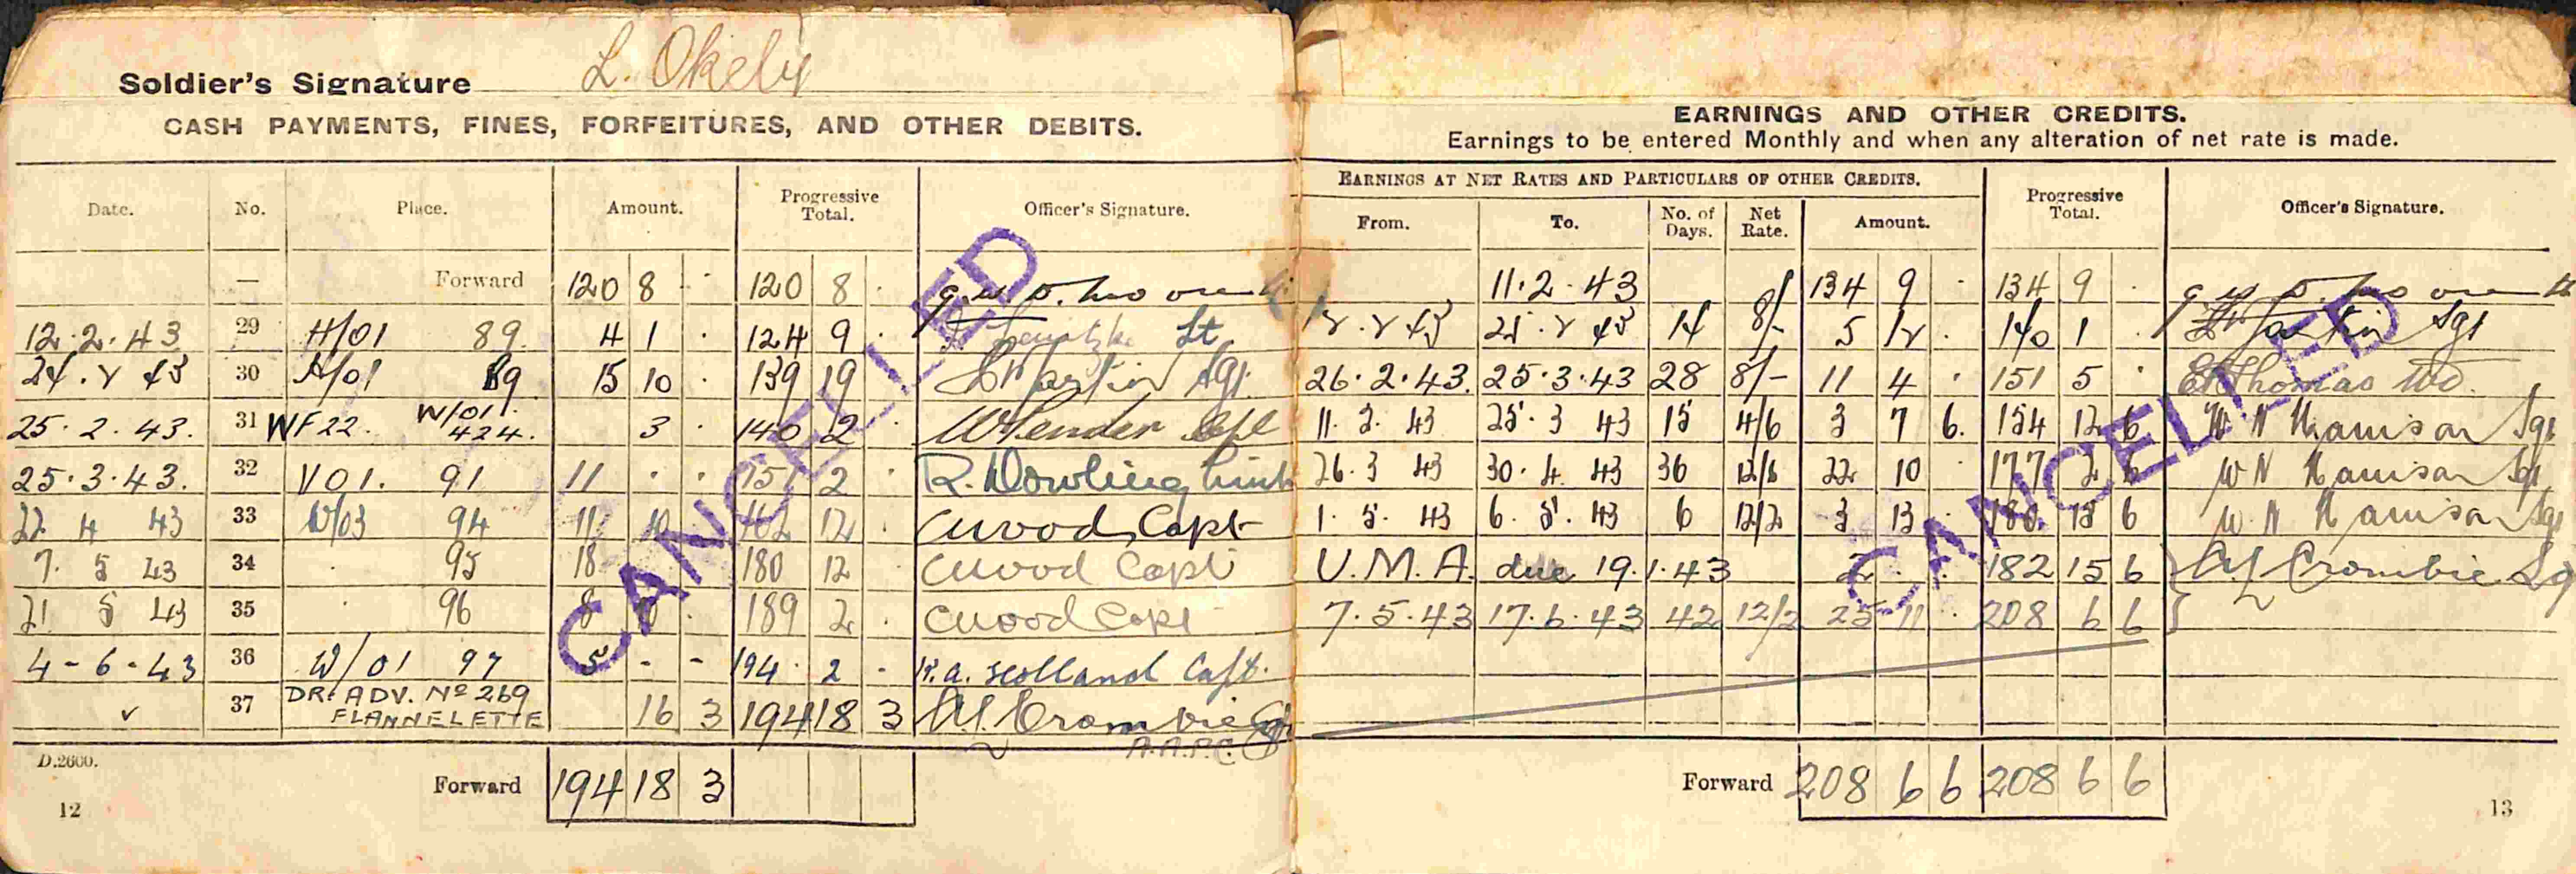 Soldier's Signature L. Okely
CASH PAYMENTS, FINES, FORFEITURES, AND OTHER DEBITS.
Date. No. Place. Amount. Progressive Total. Officer's Signature.
— Forward 120 8 · 120 8 ·
12.2.43 29 H/01 89. 4 1 · 124 9 · Lt
24.2 43 30 H/01 89 15 10 · 139 19 · Martin Sgt.
25.2.43. 31 WF22. W/01. 424. 3 · 140 2 ·
25.3.43. 32 V01. 91 11 · · 151 2 · R. Dowling Lieut
22 4 43 33 W/03 94 11 10 162 12 · CWood Capt
7. 5 43 34 · 95 18 180 12 · CWood Capt
21 5 43 35 · 96 8 · 189 2 · CWood Capt
4-6-43 36 W/01 97 5 - - 194 · 2 - Capt.
✓ 37 DR. ADV. Nº 269 FLANNELETTE 16 3 194 18 3 Crombie Sgt
A.A.P.C.
D.2600. Forward 194 18 3
12
CANCELLED
EARNINGS AND OTHER CREDITS.
Earnings to be entered Monthly and when any alteration of net rate is made.
EARNINGS AT NET RATES AND PARTICULARS OF OTHER CREDITS. Progressive Total. Officer's Signature.
From. To. No. of Days. Net Rate. Amount.
11.2.43 8/ 134 9 · 134 9 ·
12.2 43 25.2 43 14 8/- 5 12 · 140 1 · Martin Sgt
26.2.43. 25.3.43 28 8/- 11 4 · 151 5 · Thomas
11.3.43 25.3 43 15 4/6 3 7 6. 154 12 6 W N Harrison Sgt
26.3 43 30.4.43 36 12/6 22 10 · 177 2 6 W N Harrison Sgt
1.5.43 6.5.43 6 12/2 3 13 · 180 15 6 W. N Harrison Sgt
U.M.A. due 19.1.43 2 · · 182 15 6 Crombie Sgt
7.5.43 17.6.43 42 12/2 25 11 · 208 6 6
Forward 208 6 6 208 6 6
13
CANCELLED